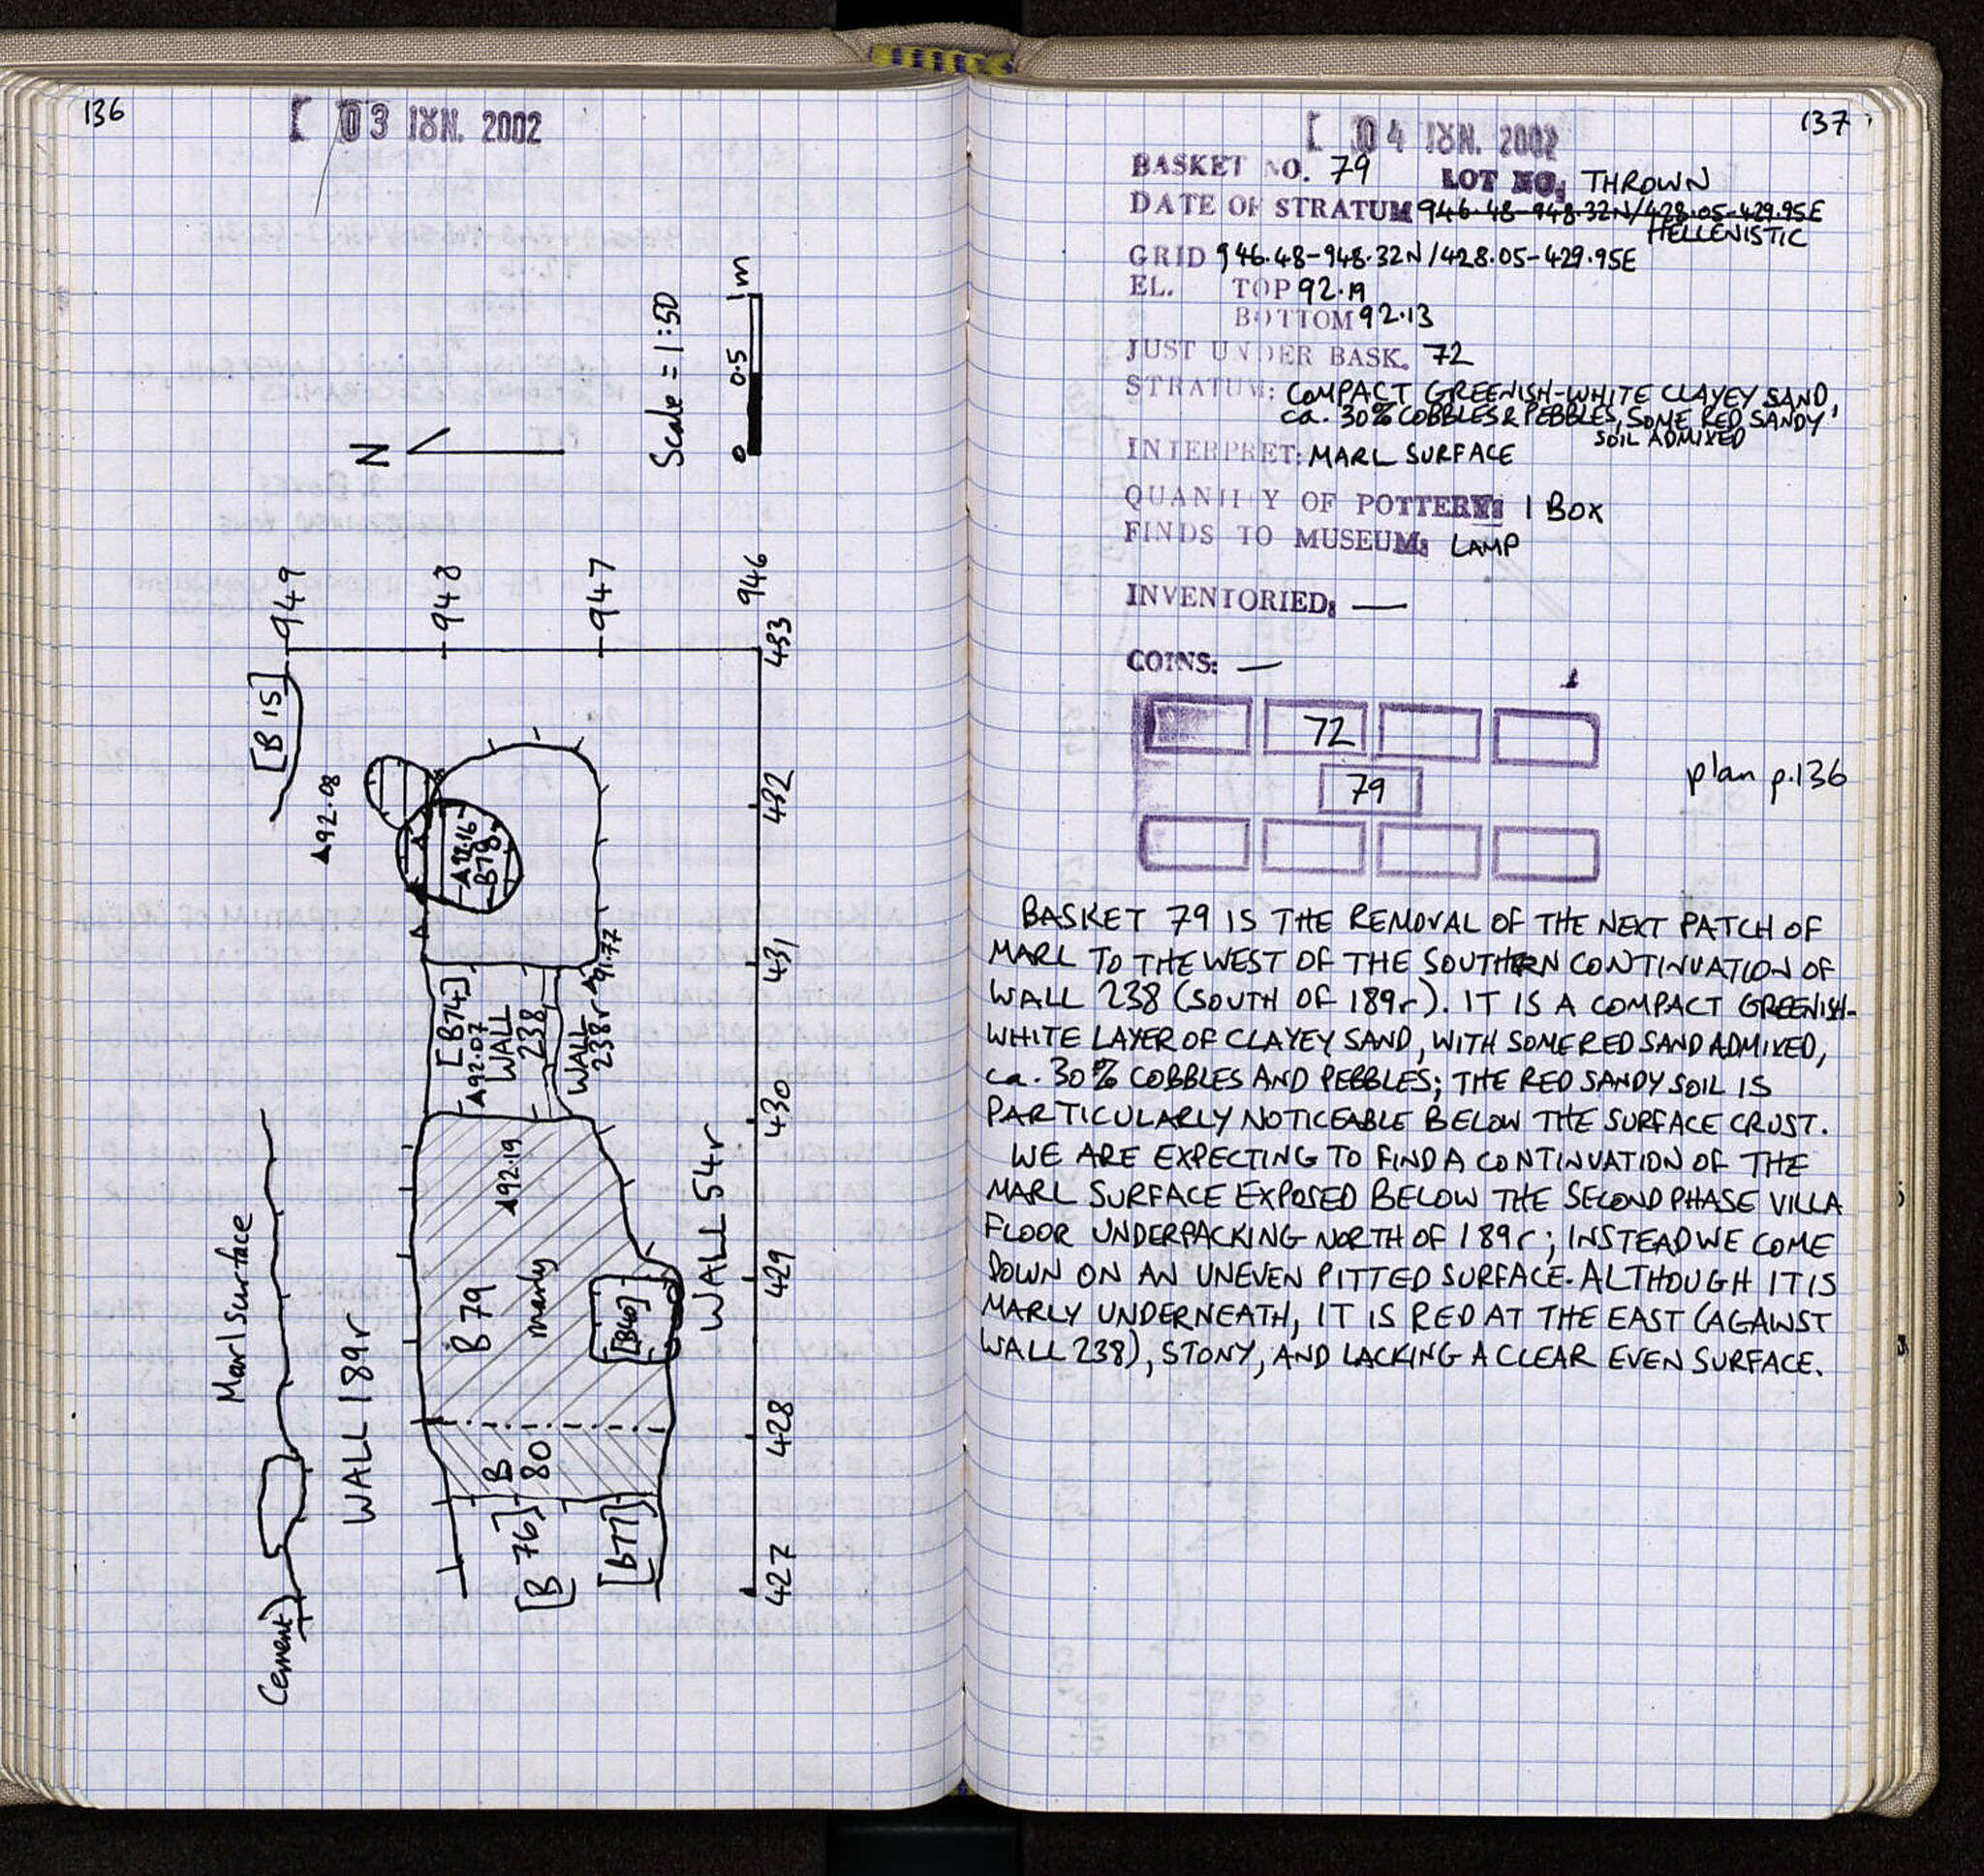 136
03 JUN. 2002
N
Scale = 1:50
0 0.5 1m
949
948
947
946
433
432
431
430
429
428
427
[B 15]
▲92.08
▲92.16
B78
[B74]
▲92.07
WALL
238
WALL
238r
91.77
▲92.19
B 79
marly
[B40]
WALL 54r
Marl surface
WALL 189r
B
80
[B 76]
[B77]
Cement
137
04 JUN. 2002
BASKET NO. 79 LOT NO: THROWN
DATE OF STRATUM 946.48-948.32N/428.05-429.95E
HELLENISTIC
GRID 946.48-948.32N/428.05-429.95E
EL. TOP 92.19
BOTTOM 92.13
JUST UNDER BASK. 72
STRATUM: COMPACT GREENISH-WHITE CLAYEY SAND,
ca. 30% COBBLES & PEBBLES, SOME RED SANDY
SOIL ADMIXED
INTERPRET: MARL SURFACE
QUANTITY OF POTTERY: 1 BOX
FINDS TO MUSEUM: LAMP
INVENTORIED: —
COINS: —
72
79
plan p.136
BASKET 79 IS THE REMOVAL OF THE NEXT PATCH OF
MARL TO THE WEST OF THE SOUTHERN CONTINUATION OF
WALL 238 (SOUTH OF 189r). IT IS A COMPACT GREENISH-
WHITE LAYER OF CLAYEY SAND, WITH SOME RED SAND ADMIXED,
ca. 30% COBBLES AND PEBBLES; THE RED SANDY SOIL IS
PARTICULARLY NOTICEABLE BELOW THE SURFACE CRUST.
WE ARE EXPECTING TO FIND A CONTINUATION OF THE
MARL SURFACE EXPOSED BELOW THE SECOND PHASE VILLA
FLOOR UNDERPACKING NORTH OF 189r; INSTEAD WE COME
DOWN ON AN UNEVEN PITTED SURFACE. ALTHOUGH IT IS
MARLY UNDERNEATH, IT IS RED AT THE EAST (AGAINST
WALL 238), STONY, AND LACKING A CLEAR EVEN SURFACE.